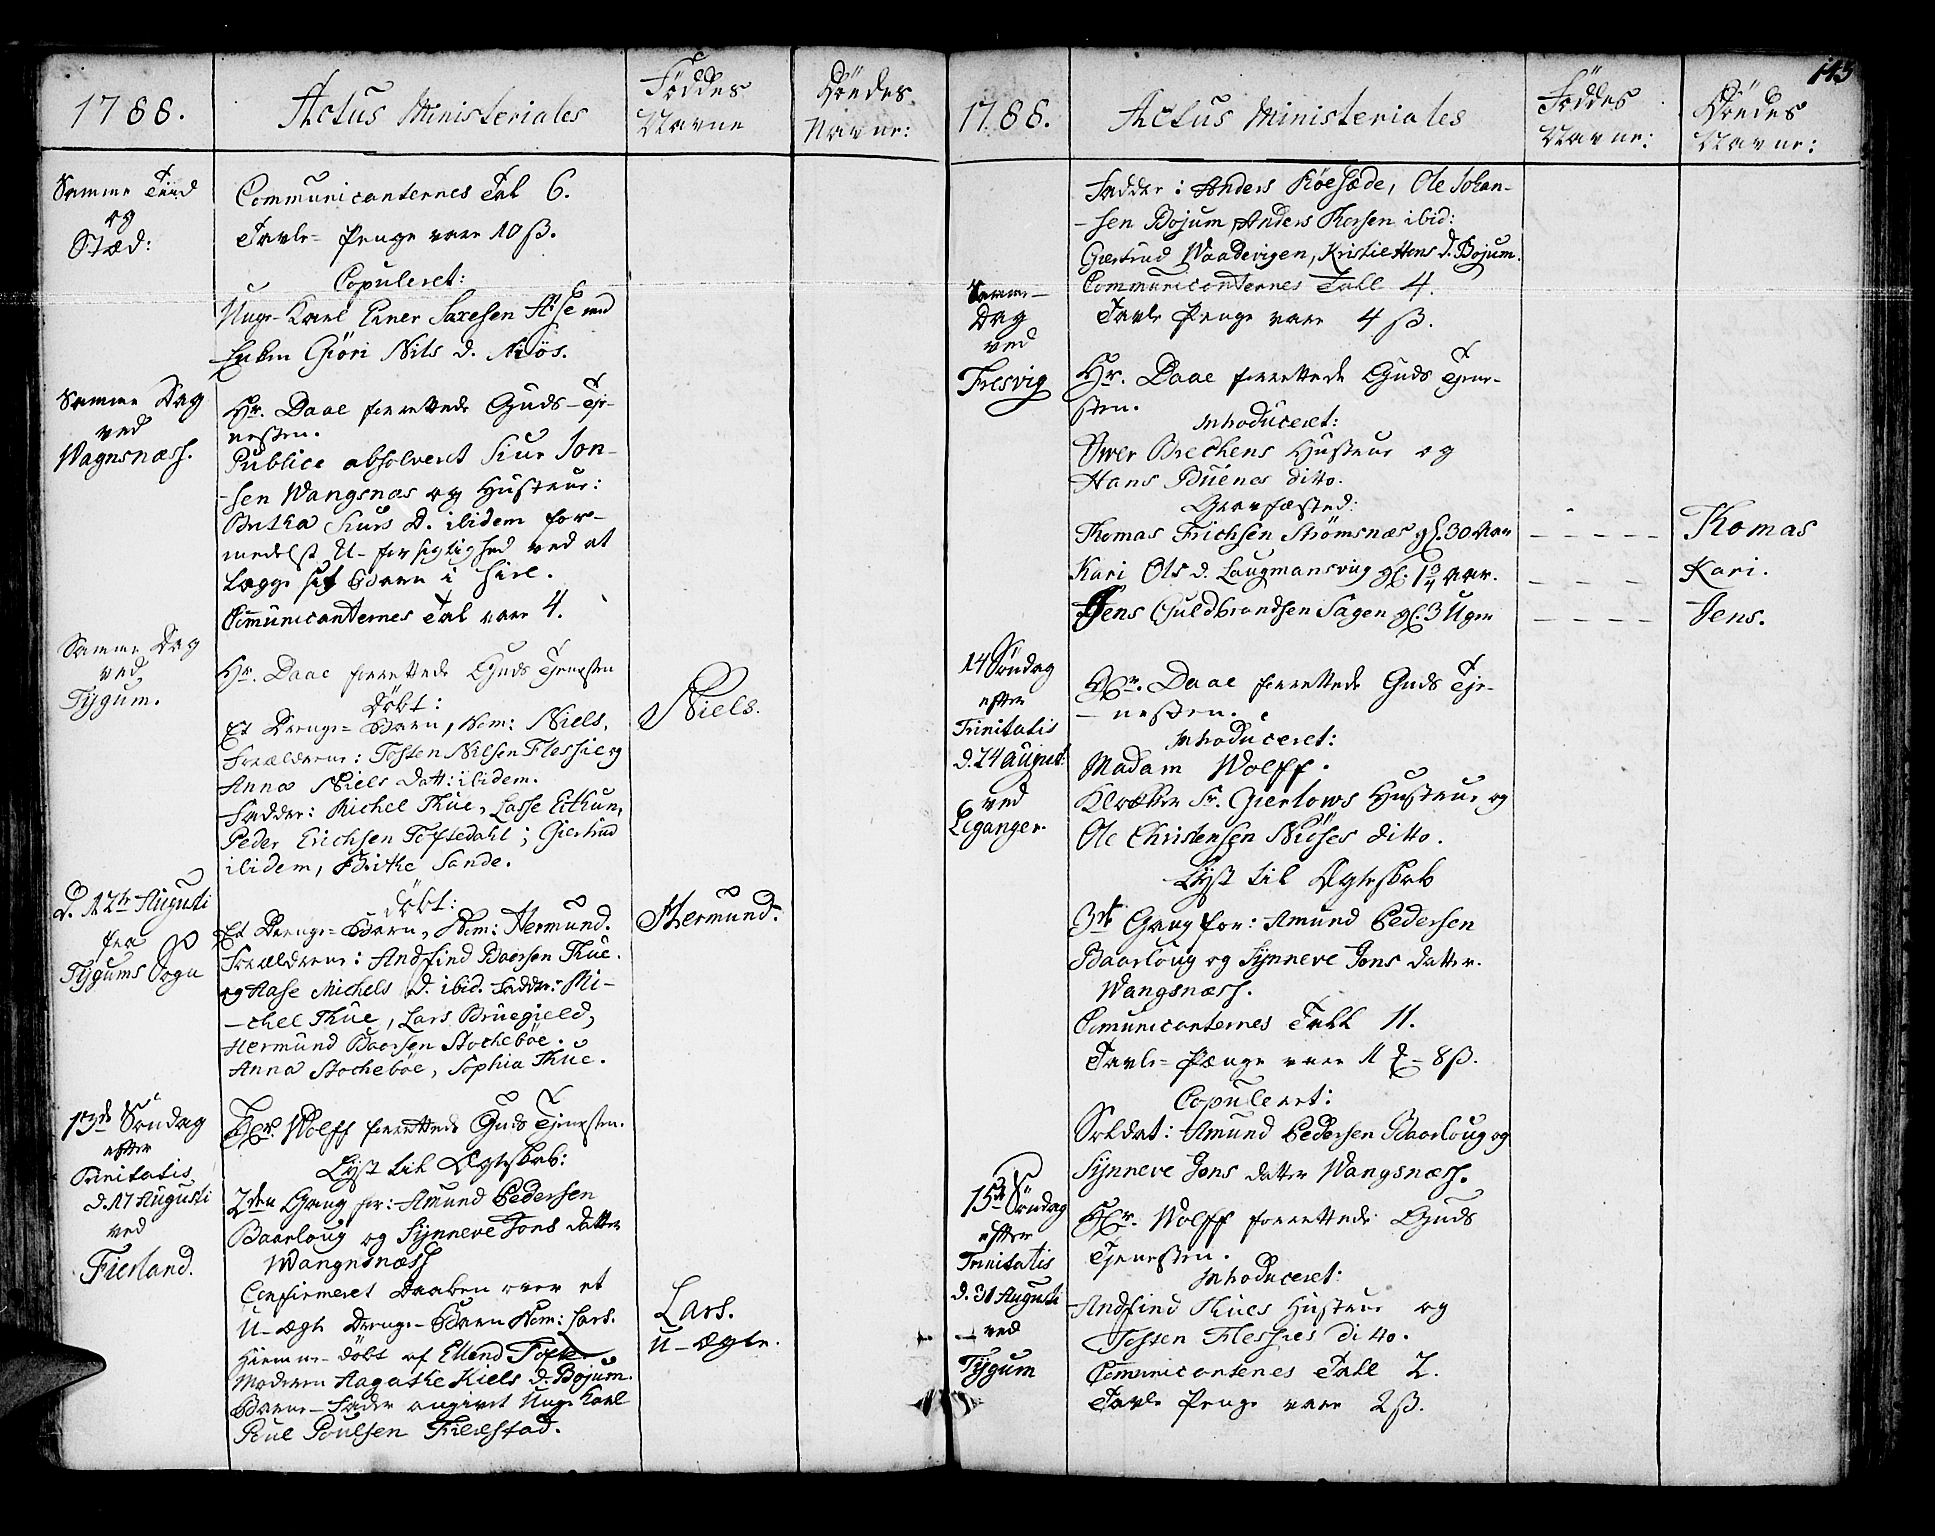 1788.
Actus Ministeriales
Föddes
Navne
Döedes
Navne:
Samme Tiid
og
Stæd:
Communicanternes Tal 6.
Tavle-Penge vare 10 ß.
Copuleret:
Unge Karl Einer Saxesen Aase med
Giöri Nils D. Niös.
Samme Dag
ved
Wagnsnæss.
Hr. Daae forrettede Guds-Tje-
nesten.
Publice absolveret Siur Jon-
-sen Wangsnæs og Hustrue:
Britha Siurs D. ibidem for-
medelst U-forsigtighed ved at
lægge sit Barn i hiel.
Comunicanternes Tal vare 4.
Samme Dag
ved
Tÿgum.
Hr. Daae forrettede Guds Tjenesten
Döbt:
Et Drenge-Barn, Nom: Niels,
Forældrene: Tosten Nilsen Flessie og
Anna Niels Datt: ibidem.
Fadder: Michel Thue, Lasse Eithun,
Peder Erichsen Toftedahl; Giertrud
ibidem, Brithe Sande.
Niels.
D. 12te Augusti
fra
Tÿgums Sogn
Döbt:
Et Drenge-Barn, Nom: Hermund.
Forældrene: Andfind Baarsen Thue.
og Aase Michels D. ibid. Fadder: Mi-
-chel Thue, Lars Bruegield,
Hermund Baarsen Stocheböe.
Anna Stocheböe, Sophia Thue.
Hermund.
13de Söndag
efter
Trinitatis
d. 17 Augusti
ved
Fierland.
Hr. Wolff forrettede Guds Tjenesten.
Lÿst til Ægteskab:
2den Gang for: Amund Pedersen
Baarloug og Sÿnneve Jons Datter
Wangnsnæss
Confirmeret Daaben over et
U-ægte Drenge-Barn Nom: Lars.
Hiemme-döbt af Ellend Tofte
Moderen Aagathe Niels D. Bojum.
Barne-Fader angivet Unge Karl
Poul Poulsen Fieldstad.
Lars.
U-ægte.
143
1788.
Actus Ministeriales
Föddes
Navne:
Döedes
Navne:
Fadder: Anders Röesæde, Ole Johan-
-sen Bojum, Anders Thorsen ibid:
Giertrud Waadevigen, Kristie Hans D. Bojum.
Communicanternes Tall 4.
Tavle Penge vare 4 ß.
Samme-
Dag
ved
Fresvig
Hr. Daae forrettede Guds Tjene-
sten.
Introduceret:
Iver Brechens Hustrue og
Hans Buenes ditto.
Gravfæsted:
Thomas Frichsen Strömsnæs gl. 30 Aar
Thomas
Kari Ols d. Laugmansvig gl. 1 3/4 Aar.
Kari.
Jens Guldbrandsen Sagen gl. 3 Uger
Jens.
14 Söndag
efter
Trinitatis
d. 24 august
ved
Leganger.
Hr. Daae forrettede Guds Tje-
-nesten.
Introduceret:
Madam Wolff.
Klokker Sr. Giertows Hustrue og
Ole Christensen Niöses ditto.
Lÿst til Ægteskab
3de Gang for: Amund Pedersen
Baarloug og Sÿnneve Jons datter.
Wangsnæss.
Comunicanternes Tall 11.
Tavle-Penge vare 1 - 8 ß.
Copuleret:
Soldat: Amund Pedersen Baarloug og
Sÿnneve Jons datter Wangsnæss.
15de Söndag
efter
Trinitatis
d. 31 Augusti
-ved
Tÿgum
Hr. Wolff forrettede Guds
Tjenesten.
Introduceret:
Andfind Thues Hustrue og
Tosten Flessies ditto.
Comunicantenes Tall 2.
Tavle Penge vare 2 ß.